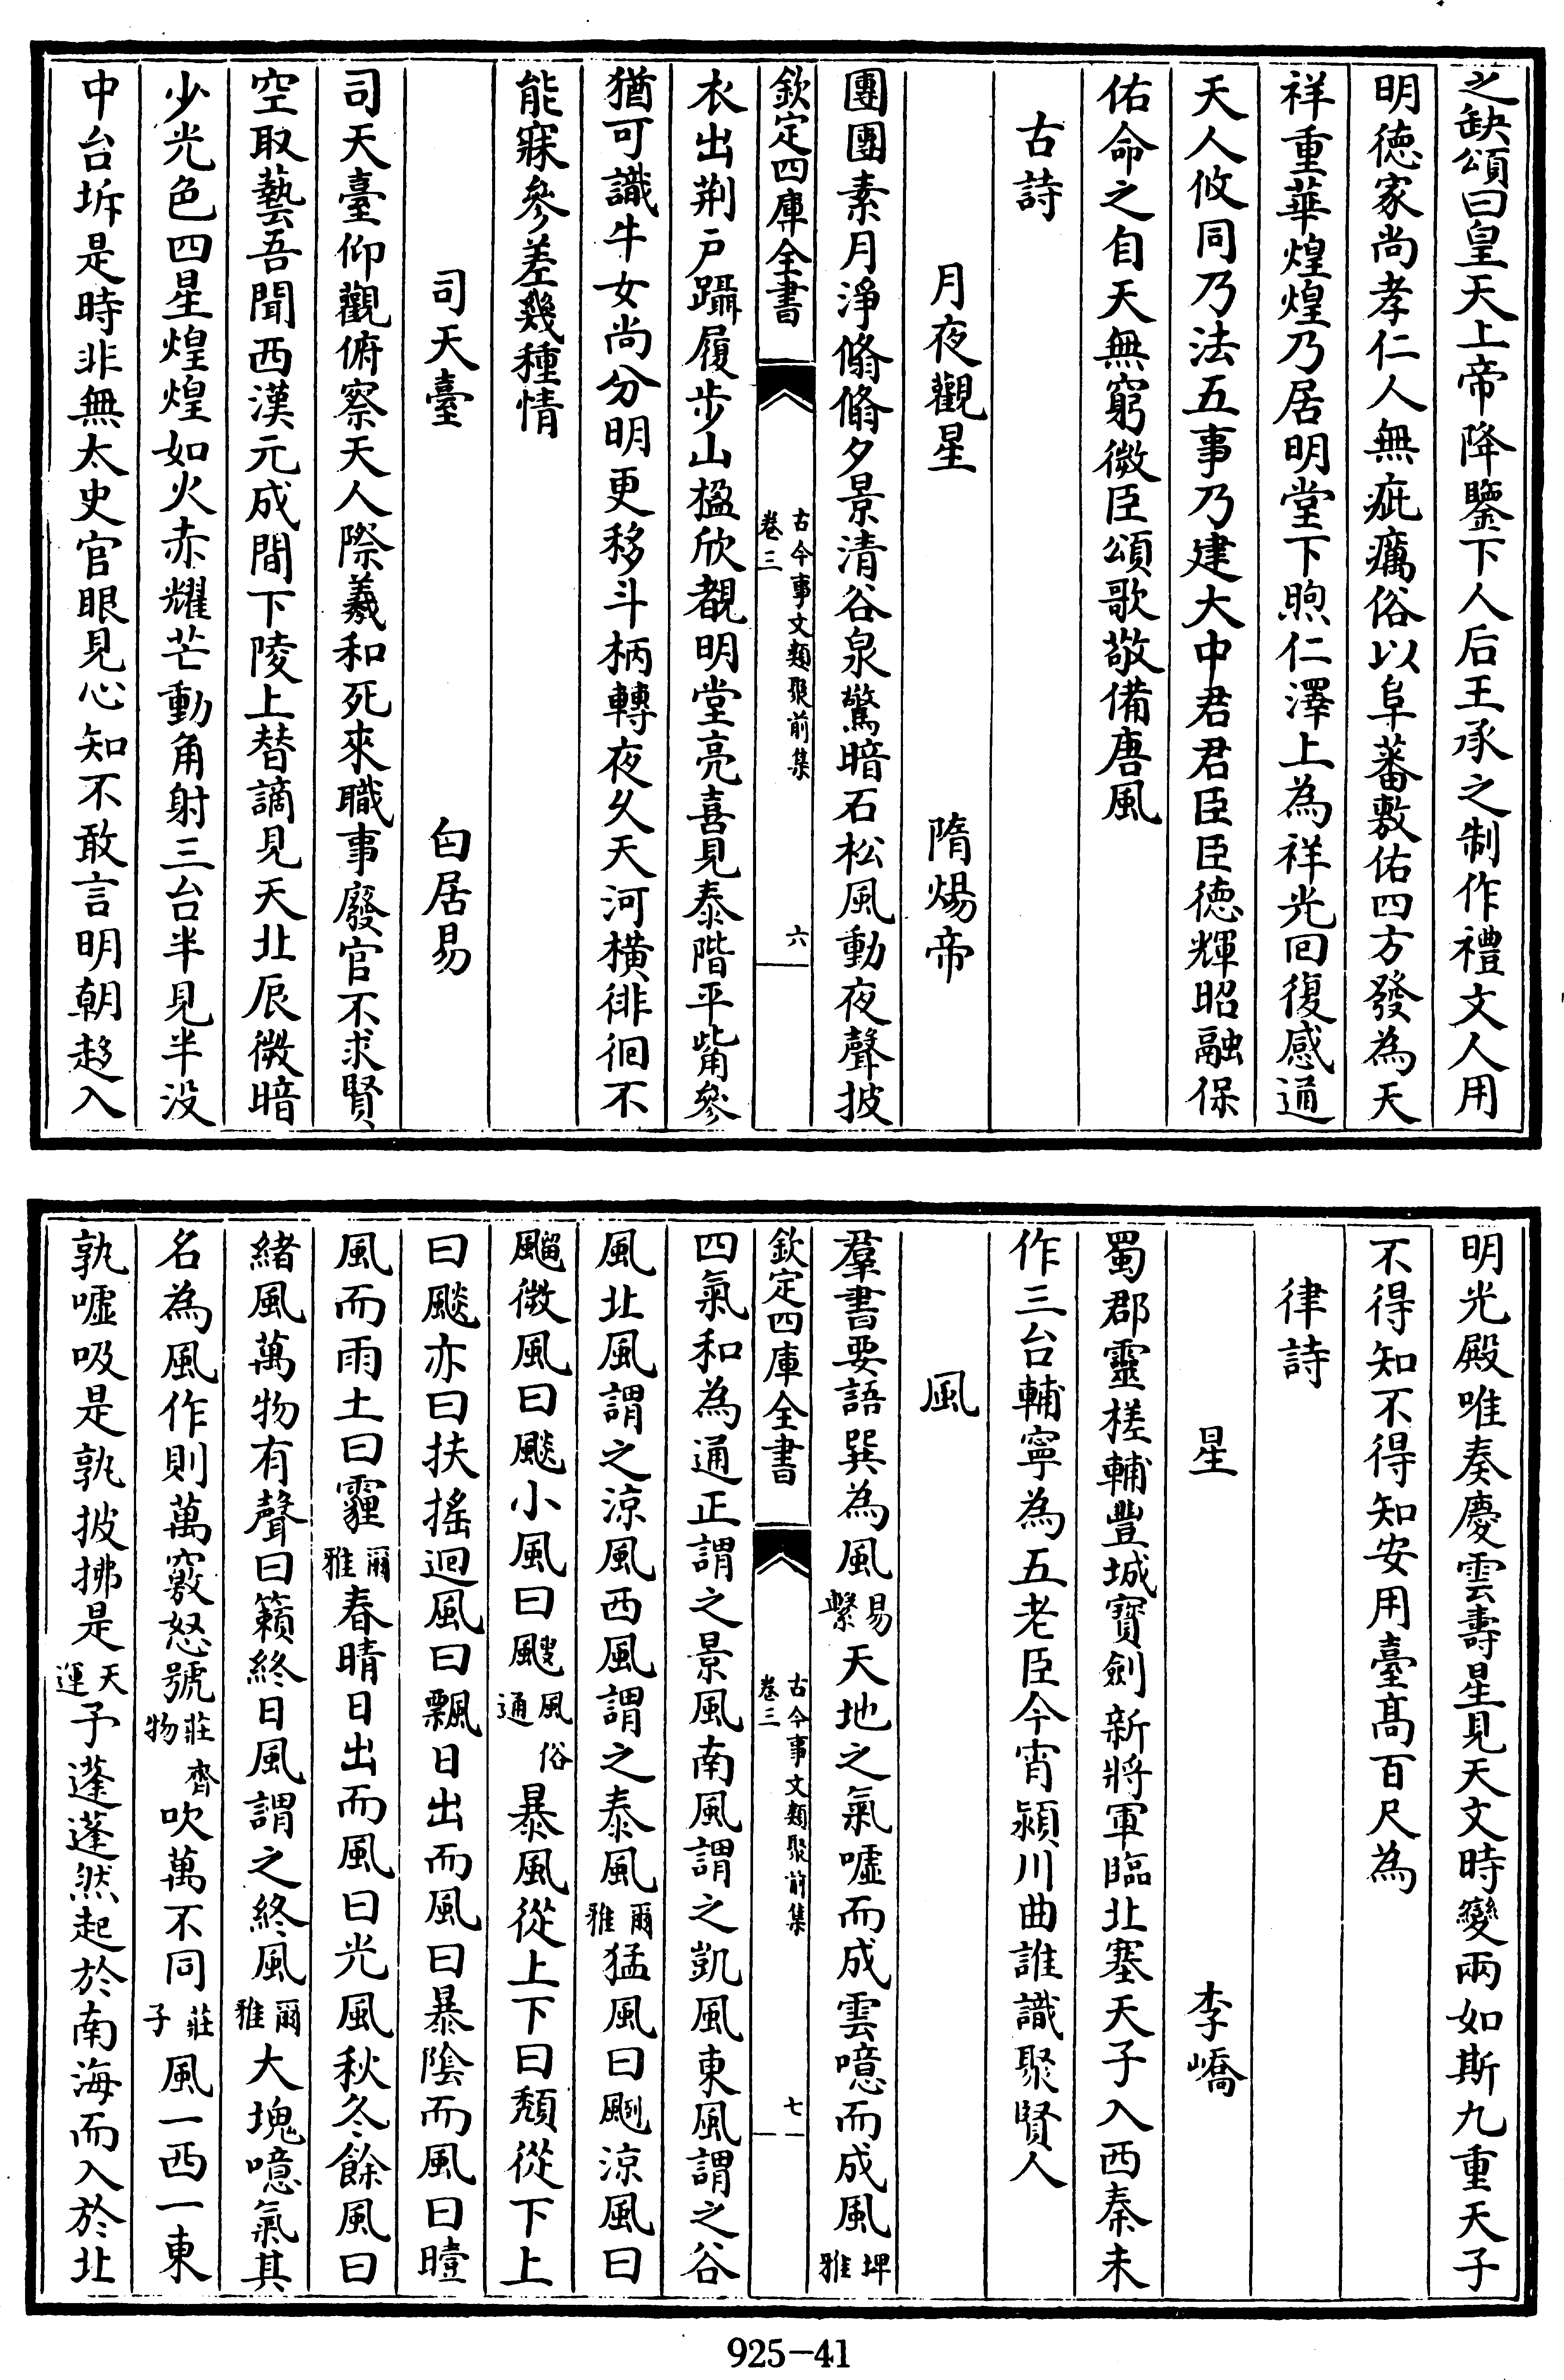 之缺頌曰皇天上帝降鑒下人后王承之制作禮文人用
明徳家尚孝仁人無疵癘俗以阜蕃敷佑四方發為天
祥重華煌煌乃居明堂下煦仁澤上為祥光回復感通
天人攸同乃法五事乃建大中君君臣臣徳輝昭融保
佑命之自天無窮微臣頌歌敬備唐風
古詩
月夜觀星 隋煬帝
團團素月淨翛翛夕景清谷泉驚暗石松風動夜聲披
欽定四庫全書 古今事文類聚前集 卷三 六
衣出荆户躡履步山楹欣覩明堂亮喜見泰階平觜參
猶可識牛女尚分明更移斗柄轉夜久天河横徘徊不
能寐參差幾種情
司天臺 白居易
司天臺仰觀俯察天人際羲和死來職事廢官不求賢
空取藝吾聞西漢元成間下陵上替謫見天北辰微暗
少光色四星煌煌如火赤耀芒動角射三台半見半没
中台坼是時非無太史官眼見心知不敢言明朝趍入
明光殿唯奏慶雲壽星見天文時變兩如斯九重天子
不得知不得知安用臺髙百尺為
律詩
星 李嶠
蜀郡靈槎輔豐城寳劍新將軍臨北塞天子入西秦未
作三台輔寧為五老臣今宵潁川曲誰識聚賢人
風
羣書要語巽為風易繫天地之氣噓而成雲噫而成風埤雅
欽定四庫全書 古今事文類聚前集 卷三 七
四氣和為通正謂之景風南風謂之凱風東風謂之谷
風北風謂之涼風西風謂之泰風爾雅猛風曰颲涼風曰
飀微風曰飈小風曰颼風俗通暴風從上下曰頽從下上
曰飈亦曰扶搖迴風曰飄日出而風曰暴陰而風曰曀
風而雨土曰霾爾雅春晴日出而風曰光風秋冬餘風曰
緒風萬物有聲曰籟終日風謂之終風爾雅大塊噫氣其
名為風作則萬竅怒號莊齊物吹萬不同莊子風一西一東
孰噓吸是孰披拂是天運予蓬蓬然起於南海而入於北
925-41